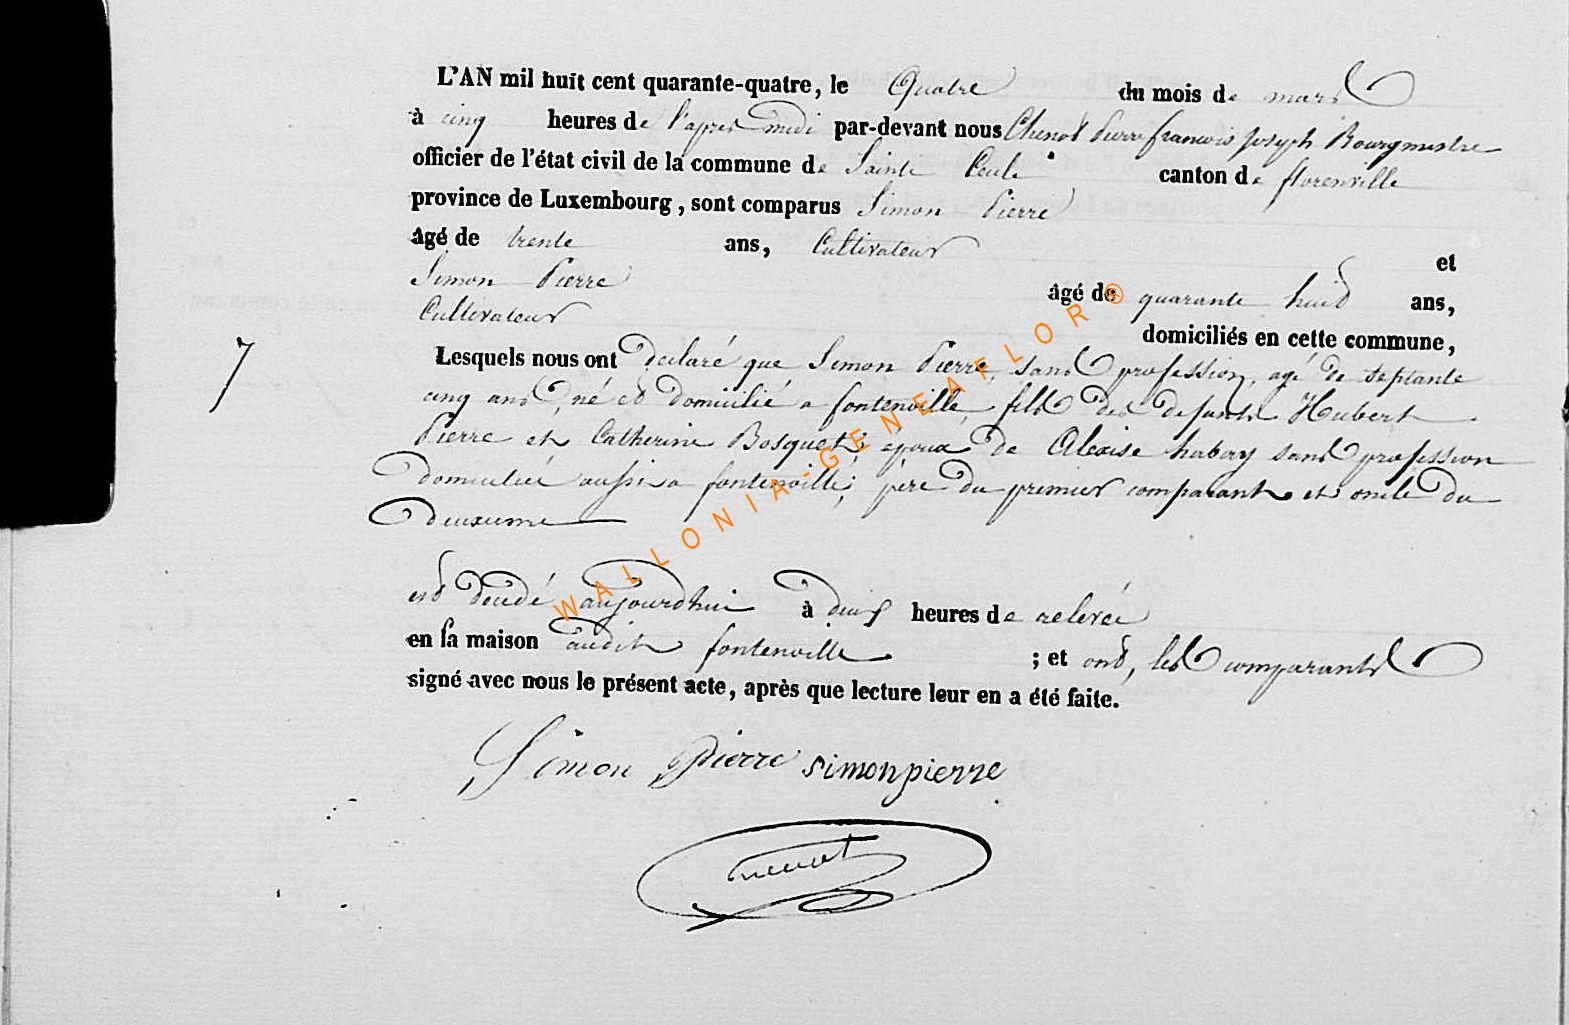 L'AN mil huit cent quarante-quatre, le Quatre du mois de mars
à cinq heures de l'après midi par-devant nous Chenot Pierre françois Joseph Bourgmestre
officier de l'état civil de la commune de Sainte Cecile canton de florenville
province de Luxembourg, sont comparus Simon Pierre
âgé de trente ans, Cultivateur et
Simon Pierre âgé de quarante huit ans,
Cultivateur domiciliés en cette commune,
7 Lesquels nous ont declaré que Simon Pierre, sans profession, agé de septante
cinq ans, né et domicilié a fontenoille, fils des defunts Hubert
Pierre et Catherine Bosquet; époux de Alexise habay sans profession
domiciliée aussi a fontenoille; père du premier comparant et oncle du
deuxieme
est décédé aujourdhui à deux heures de relevée
en sa maison audit fontenoille ; et ont, les comparants
signé avec nous le présent acte, après que lecture leur en a été faite.
Simon Pierre simonpierre
Chenot
WALLONIA-GENEAFLOR®